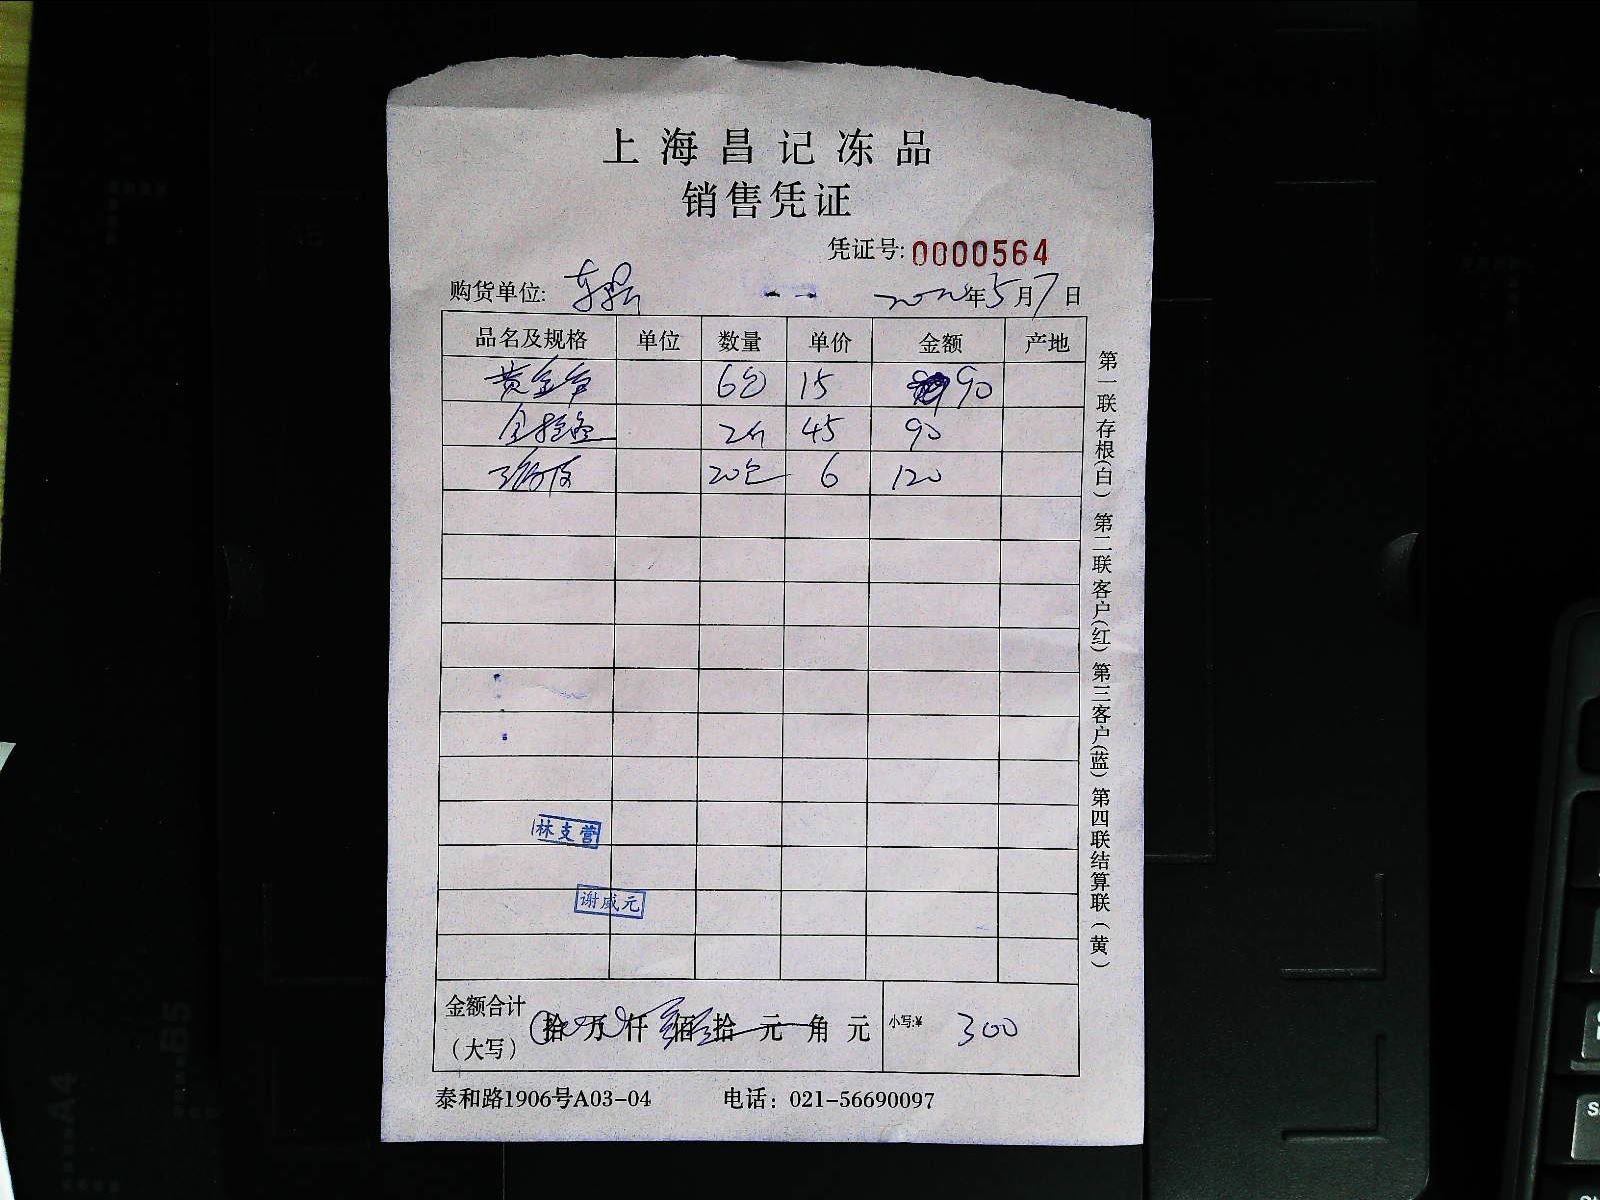 上海昌记冻品
销售凭证
凭证号:0000564
购货单位: 年5月7日
品名及规格 单位 数量 单价 金额 产地
6包 15 90
45 90
20包 6 120
林支营
谢威元
金额合计
(大写) 拾 万 仟 佰 拾 元 角 元 小写:¥ 300
泰和路1906号A03-04 电话: 021-56690097
第一联存根(白) 第二联客户(红) 第三客户(蓝) 第四联结算联(黄)